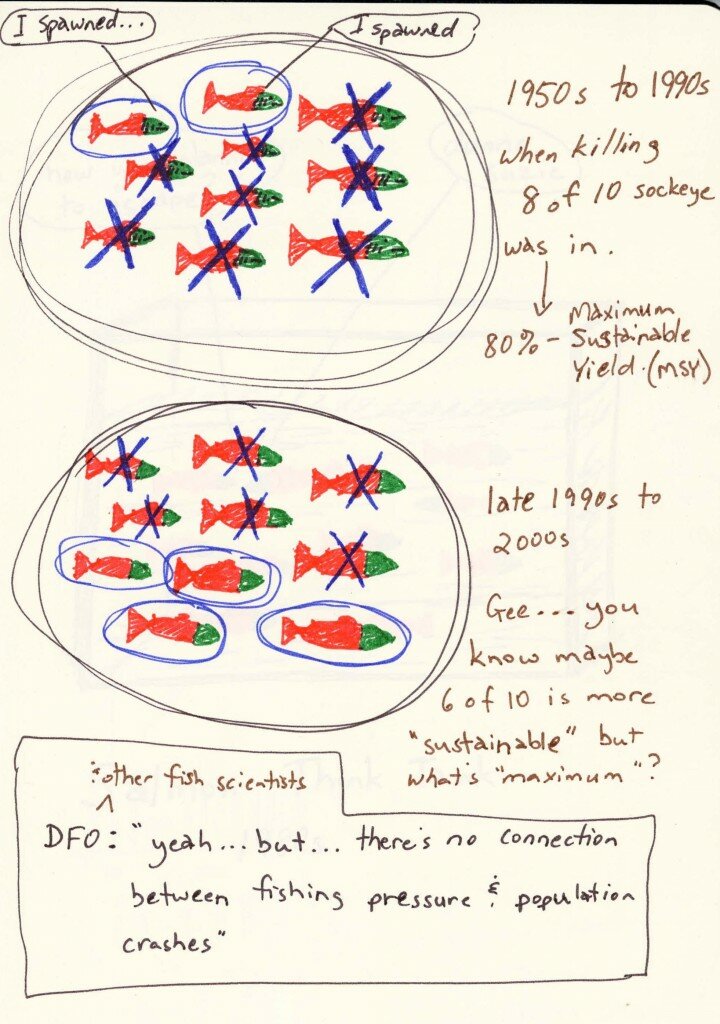 I spawned...
I spawned
1950s to 1990s
when killing
8 of 10 sockeye
was in.
80% - Maximum
Sustainable
Yield. (MSY)
late 1990s to
2000s
Gee... you
know maybe
6 of 10 is more
"sustainable" but
what's "maximum"?
& other fish scientists
DFO: "yeah... but... there's no connection
between fishing pressure & population
crashes"